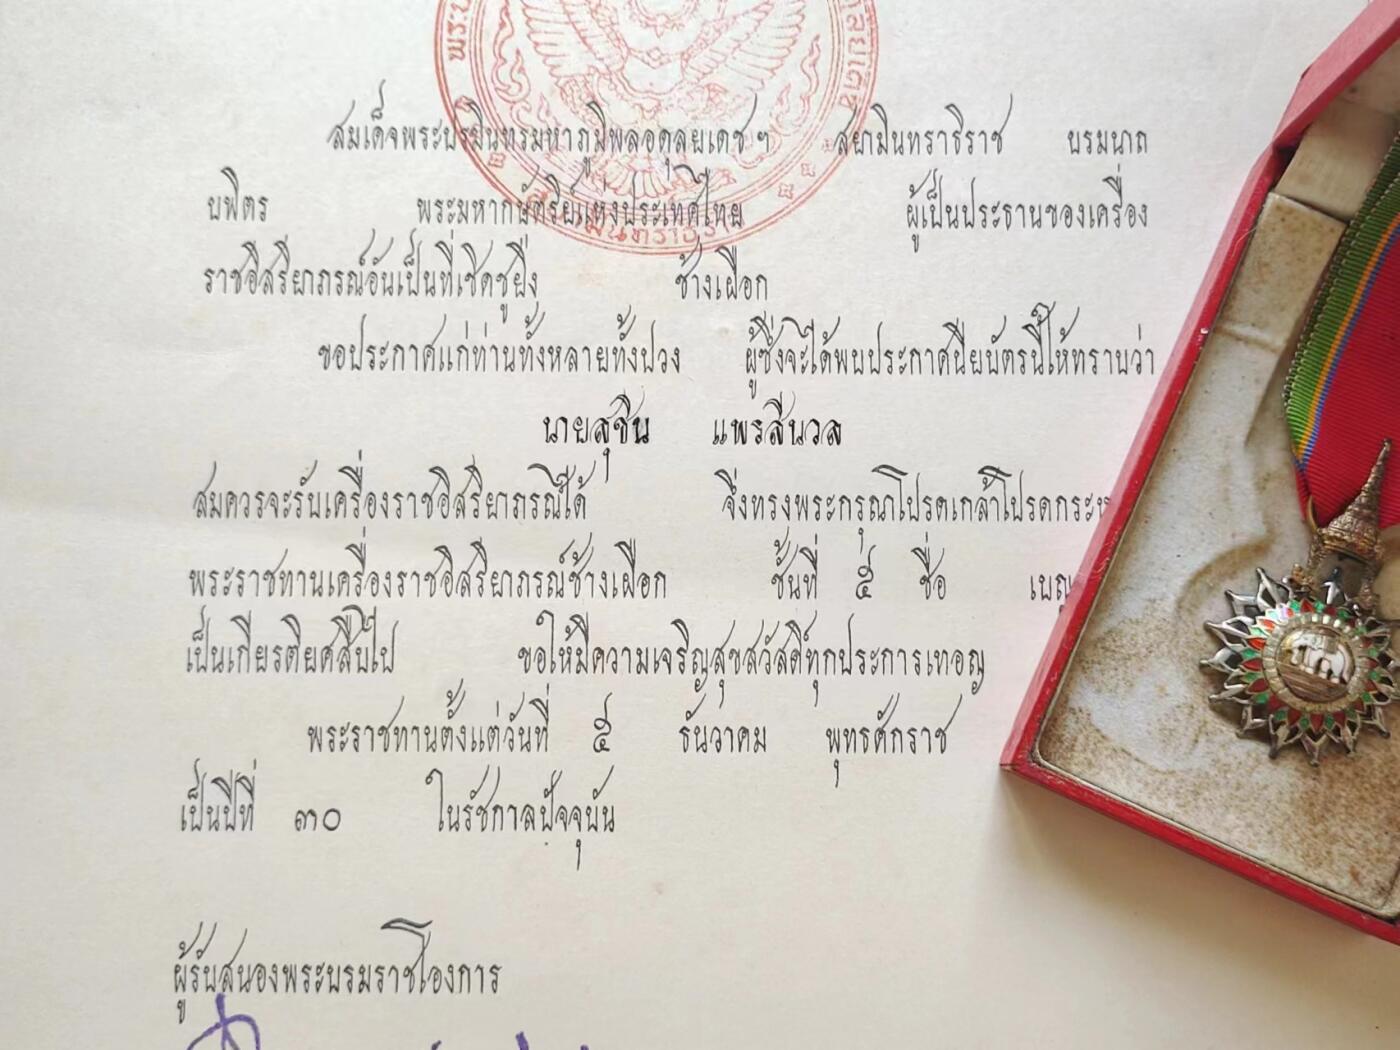 สมเด็จพระปรมินทรมหาภูมิพลอดุลยเดชฯ สยามินทราธิราช บรมนาถ
บพิตร พระมหากษัตริย์แห่งประเทศไทย ผู้เป็นประธานของเครื่อง
ราชอิสริยาภรณ์อันเป็นที่เชิดชูยิ่ง ช้างเผือก
ขอประกาศแก่ท่านทั้งหลายทั้งปวง ผู้ซึ่งจะได้พบประกาศนียบัตรนี้ให้ทราบว่า
นายสุชิน แพรสีนวล
สมควรจะรับเครื่องราชอิสริยาภรณ์ได้ จึ่งทรงพระกรุณาโปรดเกล้าโปรดกระห
พระราชทานเครื่องราชอิสริยาภรณ์ช้างเผือก ชั้นที่ ๕ ชื่อ เบญ
เป็นเกียรติยศสืบไป ขอให้มีความเจริญสุขสวัสดิ์ทุกประการเทอญ
พระราชทานตั้งแต่วันที่ ๕ ธันวาคม พุทธศักราช
เป็นปีที่ ๓๐ ในรัชกาลปัจจุบัน
ผู้รับสนองพระบรมราชโองการ